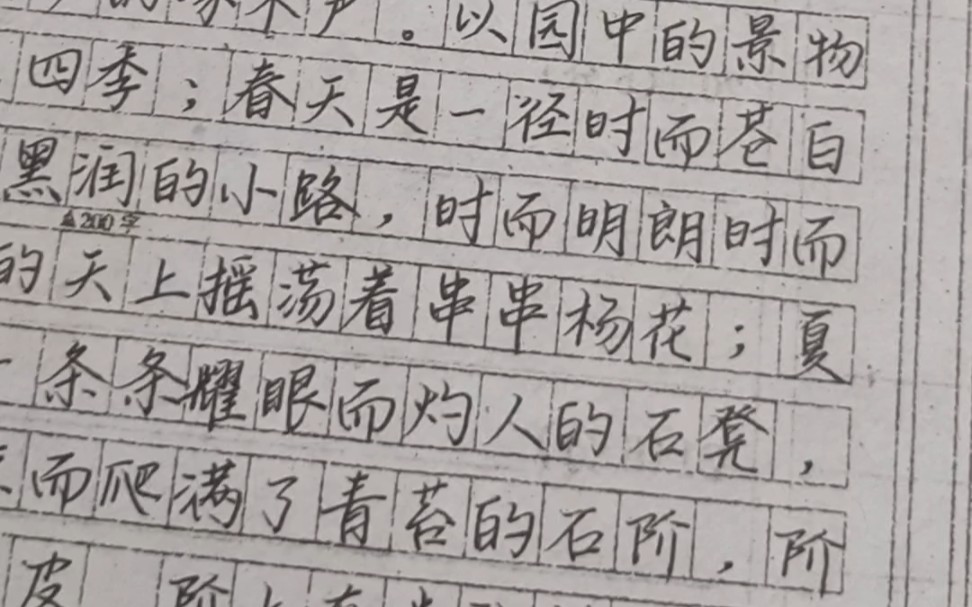 的啄木声。以园中的景物
四季；春天是一径时而苍白
黑润的小路，时而明朗时而
▲200字
的天上摇荡着串串杨花；夏
一条条耀眼而灼人的石凳，
而爬满了青苔的石阶，阶
皮 阶上有